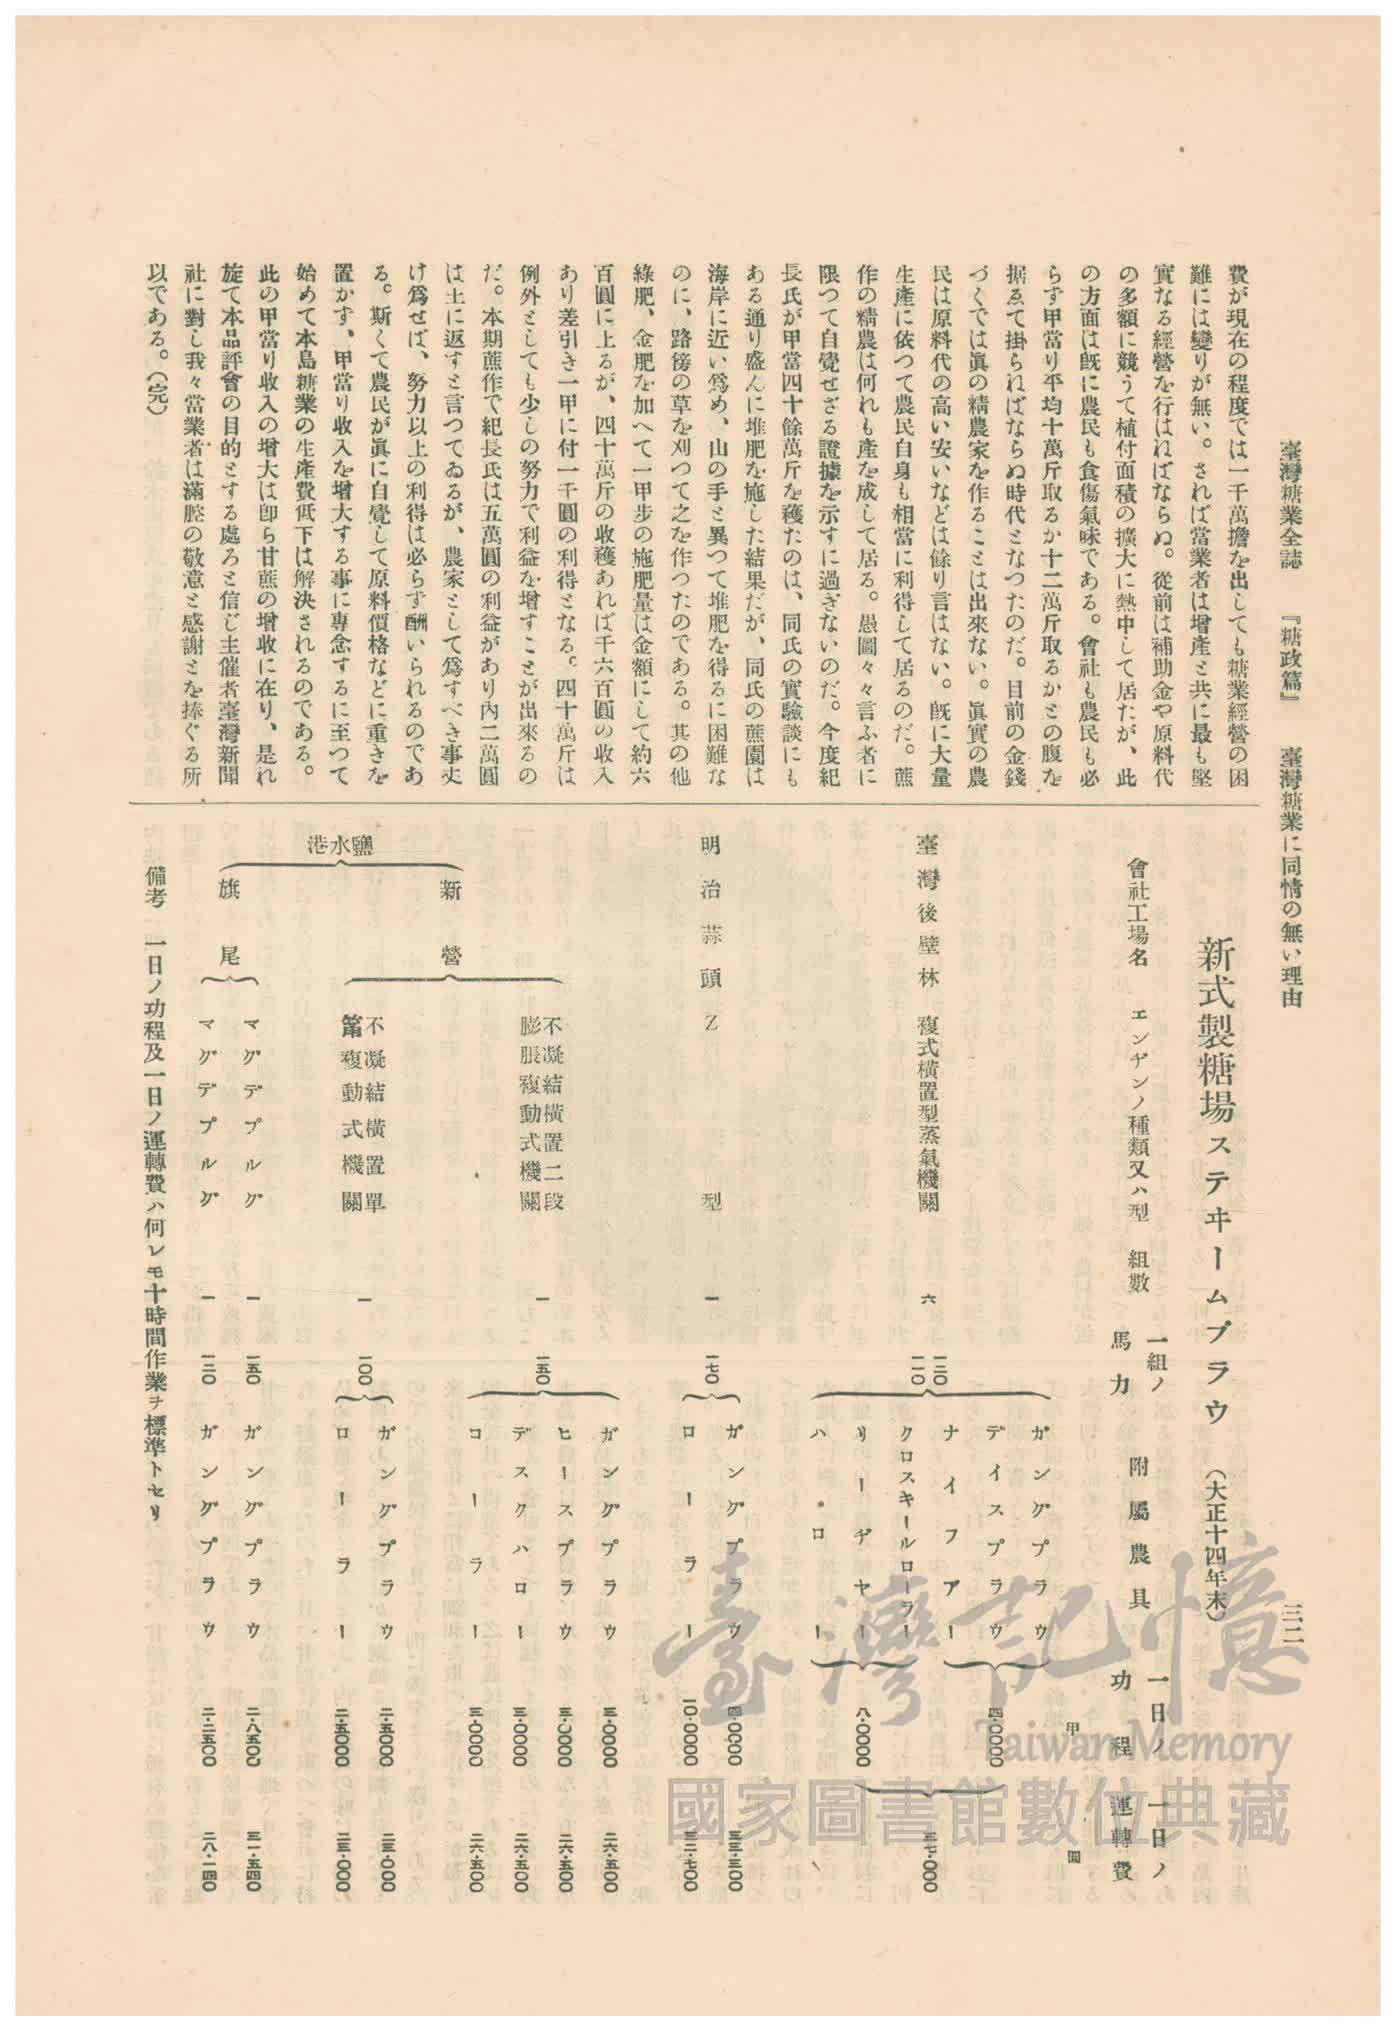 臺灣糖業全誌 『糖政篇』 臺灣糖業に同情の無い理由 三二
費が現在の程度では一千萬擔を出しても糖業經營の困
難には變りが無い。されば當業者は增產と共に最も堅
實なる經營を行はればならぬ。從前は補助金や原料代
の多額に競うて植付面積の擴大に熱中して居たが、此
の方面は旣に農民も食傷氣味である。會社も農民も必
らず甲當り平均十萬斤取るか十二萬斤取るかとの腹を
据ゑて掛らればならぬ時代となつたのだ。目前の金錢
づくでは眞の精農家を作ることは出來ない。眞實の農
民は原料代の高い安いなどは餘り言はない。旣に大量
生產に依つて農民自身も相當に利得して居るのだ。蔗
作の精農は何れも產を成して居る。愚圖々々言ふ者に
限つて自覺せざる證據を示すに過ぎないのだ。今度紀
長氏が甲當四十餘萬斤を穫たのは、同氏の實驗談にも
ある通り盛んに堆肥を施した結果だが、同氏の蔗園は
海岸に近い爲め、山の手と異つて堆肥を得るに困難な
のに、路傍の草を刈つて之を作つたのである。其の他
綠肥、金肥を加へて一甲步の施肥量は金額にして約六
百圓に上るが、四十萬斤の收穫あれば千六百圓の收入
あり差引き一甲に付一千圓の利得となる。四十萬斤は
例外としても少しの努力で利益を增すことが出來るの
だ。本期蔗作で紀長氏は五萬圓の利益があり內二萬圓
は土に返すと言つてゐるが、農家として爲すべき事丈
け爲せば、努力以上の利得は必らず酬いられるのであ
る。斯くて農民が眞に自覺して原料價格などに重きを
置かず、甲當り收入を增大する事に專念するに至つて
始めて本島糖業の生產費低下は解決されるのである。
此の甲當り收入の增大は卽ち甘蔗の增收に在り、是れ
旋て本品評會の目的とする處ろと信じ主催者臺灣新聞
社に對し我々當業者は滿腔の敬意と感謝とを捧ぐる所
以である。(完)
新式製糖場ステヰームプラウ (大正十四年末)
會社工場名 エンヂンノ種類又ハ型 組數 一組ノ馬力 附屬農具 一日ノ功程 一日ノ運轉費
甲 圓
臺灣後壁林 複式橫置型蒸氣機關 六 一二〇 一一〇
ガングプラウ
デイスプラウ
ナイフアー 四・〇〇〇〇
クロスキールローラー
リーヂヤー
ハーロー 八・〇〇〇〇 三七・〇〇〇
明治蒜頭 Z型 一 一七〇 ガングプラウ 四・〇〇〇〇 三三・三〇〇
ローラー 一〇・〇〇〇〇 三二・七〇〇
鹽水港
新營 不凝結橫置二段膨脹複動式機關 一 一五〇 ガングプラウ 三・〇〇〇〇 二六・五〇〇
ヒースプラウ 三・〇〇〇〇 二六・五〇〇
デスクハロー 三・〇〇〇〇 二六・五〇〇
ローラー 三・〇〇〇〇 二六・五〇〇
不凝結橫置單筩複動式機關 一 一〇〇 ガングプラウ 二・五〇〇〇 二三・〇〇〇
ローラー 二・五〇〇〇 二三・〇〇〇
旗尾 マグデブルグ 一 一五〇 ガングプラウ 二・八五〇〇 三一・五四〇
マグデブルグ 一 一二〇 ガングプラウ 二・二五〇〇 二八・一四〇
備考 一日ノ功程及一日ノ運轉費ハ何レモ十時間作業ヲ標準トセリ
臺灣記憶
Taiwan Memory
國家圖書館數位典藏